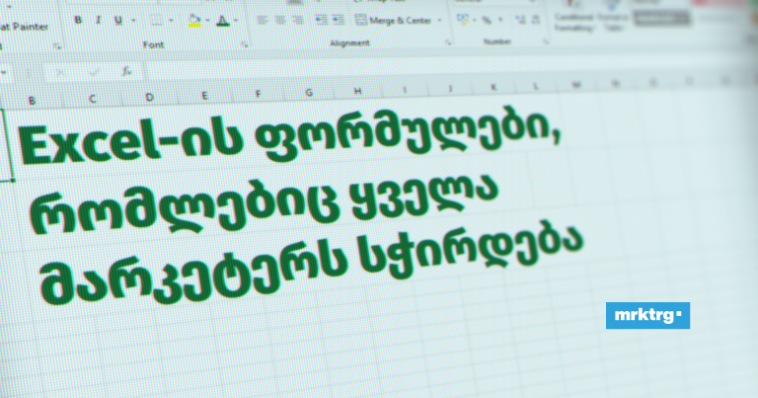 at Painter
B I U
Merge & Center
Font
Alignment
Number
fx
B C D E F G H I J K L M
Excel-ის ფორმულები,
რომლებიც ყველა
მარკეტერს სჭირდება
mrktrg